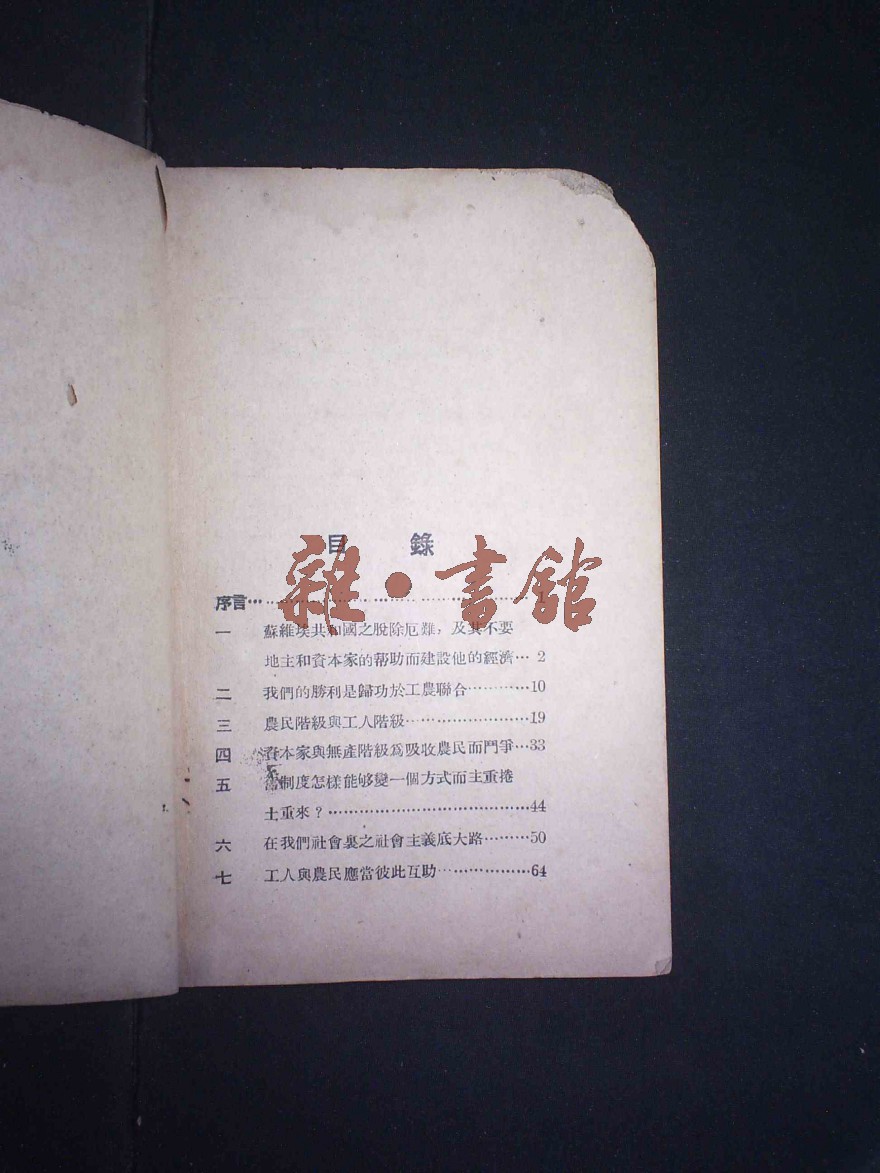 目 錄
雜•書館
序言……………………………………1
一 蘇維埃共和國之脫除厄難，及其不要
地主和資本家的帮助而建設他的經濟…2
二 我們的勝利是歸功於工農聯合…………10
三 農民階級與工人階級…………………19
四 資本家與無產階級爲吸收農民而鬥爭…33
五 舊制度怎樣能够變一個方式而主重捲
土重來？…………………………………44
六 在我們社會裏之社會主義底大路………50
七 工人與農民應當彼此互助………………64